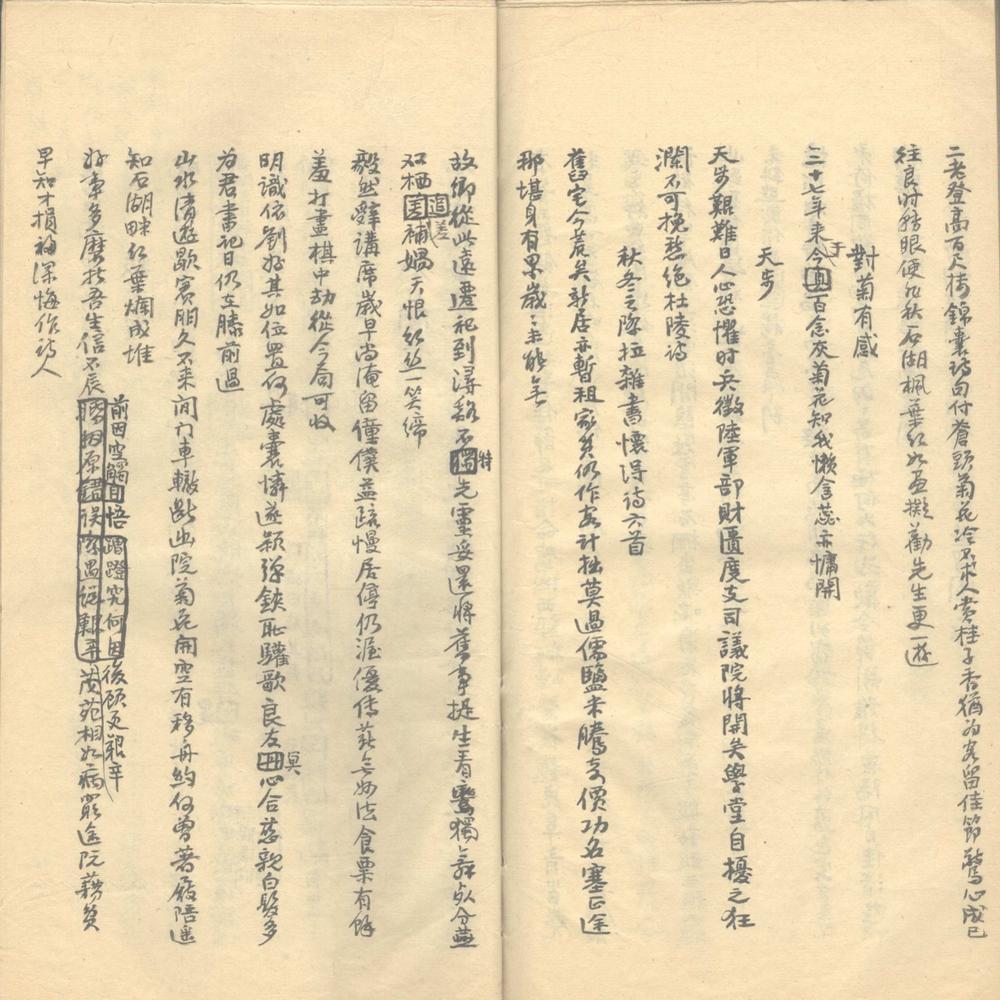 二老登高百尺樓錦囊詩句付蒼頭菊花冷不求人賞桂子香猶為客留佳節驚心成已
往良時轉眼便如秋石湖楓葉紅如畫擬勸先生更一遊
對菊有感
二十七年來于今百念灰菊花知我懶含蕊亦慵開
天步
天步艱難日人心恐懼時兵徵陸軍部財匱度支司議院將開矣學堂自擾之狂
瀾不可挽愁絕杜陵詩
秋冬之際拉雜書懷得詩六首
舊宅今荒矣新居亦暫租家貧仍作客計拙莫過儒鹽米騰高價功名塞正途
那堪身有累歲歲未能無
故鄉從此遠遷祀到潯谿不特先靈妥還將舊事提生看鸞獨舞死分燕
双棲追補媧天恨紅絲一笑締
毅然辭講席歲早尚淹留僮僕益疏慢居停仍渥優傳薪無妙法食粟有餘
羞打盡棋中劫從今局可收
明識依劉好其如位置何處囊憐遂穎彈鋏恥驩歌良友冥心合慈親白髮多
為君書祀日仍在膝前過
山水清遊歇賓朋久不來閒門車轍斷幽院菊花開空有移舟約何曾著屐陪遙
知石湖畔紅葉爛成堆
好事多磨折吾生信不辰前因空觸悟後顧更艱辛茂苑相如病窮途阮籍貧
早知才損福深悔作詩人